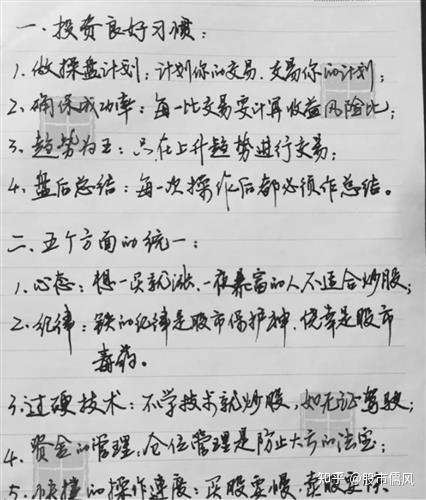 一、投资良好习惯：
1、做操盘计划：计划你的交易、交易你的计划；
2、确保成功率：每一比交易要计算收益风险比；
3、趋势为王：只在上升趋势进行交易；
4、盘后总结：每一次操作后都必须作总结。
二、五个方面的统一：
1、心态：想一买就涨、一夜暴富的人不适合炒股；
2、纪律：铁的纪律是股市保护神，侥幸是股市
毒药。
3、过硬技术：不学技术就炒股，如无证驾驶；
4、资金的管理：仓位管理是防止大亏的法宝；
5、快捷的操作速度：买股要慢，卖股要快
知乎 @股市儒风